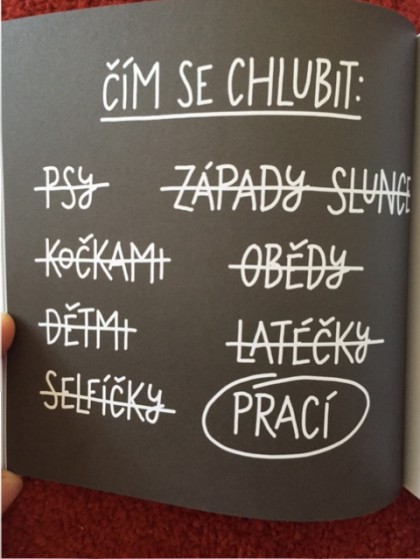 ČÍM SE CHLUBIT:
PSY
ZÁPADY SLUNCE
KOČKAMI
OBĚDY
DĚTMI
LATÉČKY
SELFÍČKY
PRACÍ